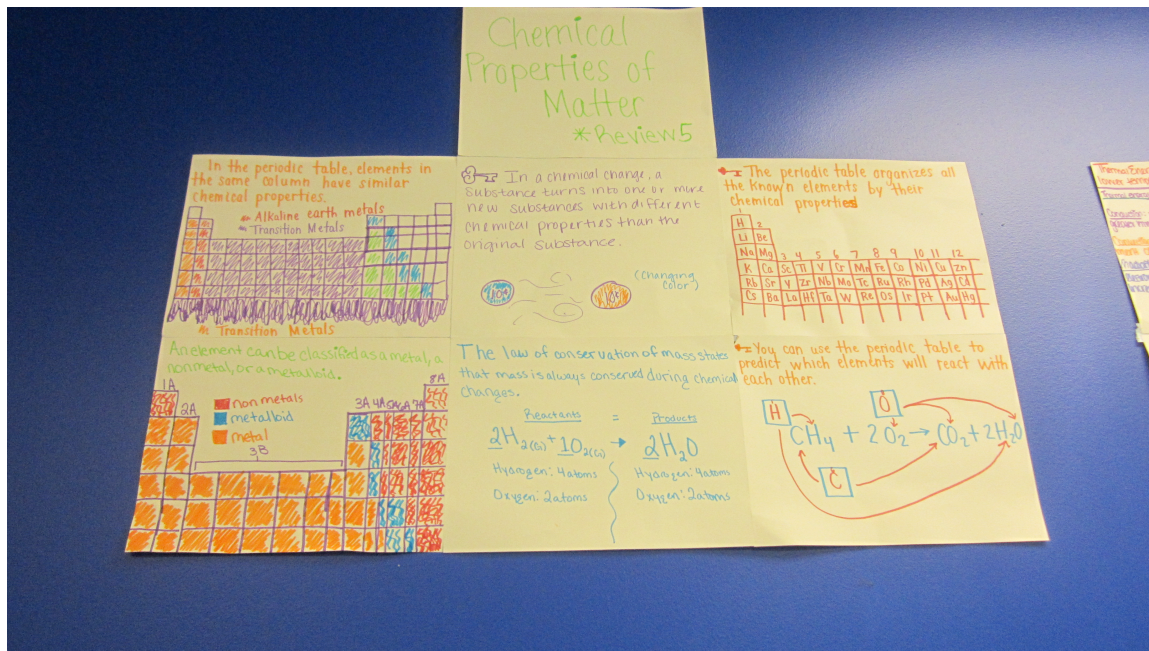 Chemical
Properties of
Matter
*Review 5
In the periodic table, elements in
the same column have similar
chemical properties.
Alkaline earth metals
Transition Metals
Transition Metals
In a chemical change, a
substance turns into one or more
new substances with different
chemical properties than the
original substance.
(Changing
color)
The periodic table organizes all
the known elements by their
chemical properties
1
H 2
Li Be
Na Mg 3 4 5 6 7 8 9 10 11 12
K Ca Sc Ti V Cr Mn Fe Co Ni Cu Zn
Rb Sr Y Zr Nb Mo Tc Ru Rh Pd Ag Cd
Cs Ba La Hf Ta W Re Os Ir Pt Au Hg
An element can be classified as a metal, a
nonmetal, or a metalloid.
1A
2A
3B
3A 4A 5A 6A 7A
8A
non metals
metalloid
metal
The law of conservation of mass states
that mass is always conserved during chemical
changes.
Reactants = Products
2H2(G) + 1O2(G) → 2H2O
Hydrogen: 4atoms
Oxygen: 2atoms
Hydrogen: 4atoms
Oxygen: 2atoms
You can use the periodic table to
predict which elements will react with
each other.
H
O
CH4 + 2O2 → CO2 + 2H2O
C